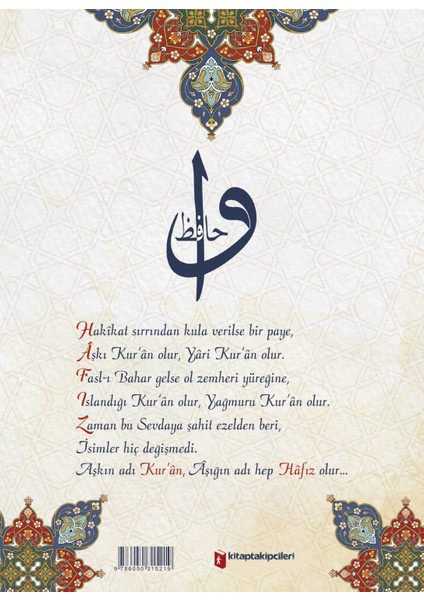 حافظ
Hakîkat sırrından kula verilse bir paye,
Âşkı Kur'ân olur, Yâri Kur'ân olur.
Fasl-ı Bahar gelse ol zemheri yüreğine,
Islandığı Kur'ân olur, Yağmuru Kur'ân olur.
Zaman bu Sevdaya şahit ezelden beri,
İsimler hiç değişmedi.
Aşkın adı Kur'ân, Âşığın adı hep Hâfız olur...
9786050315219
kitaptakipcileri